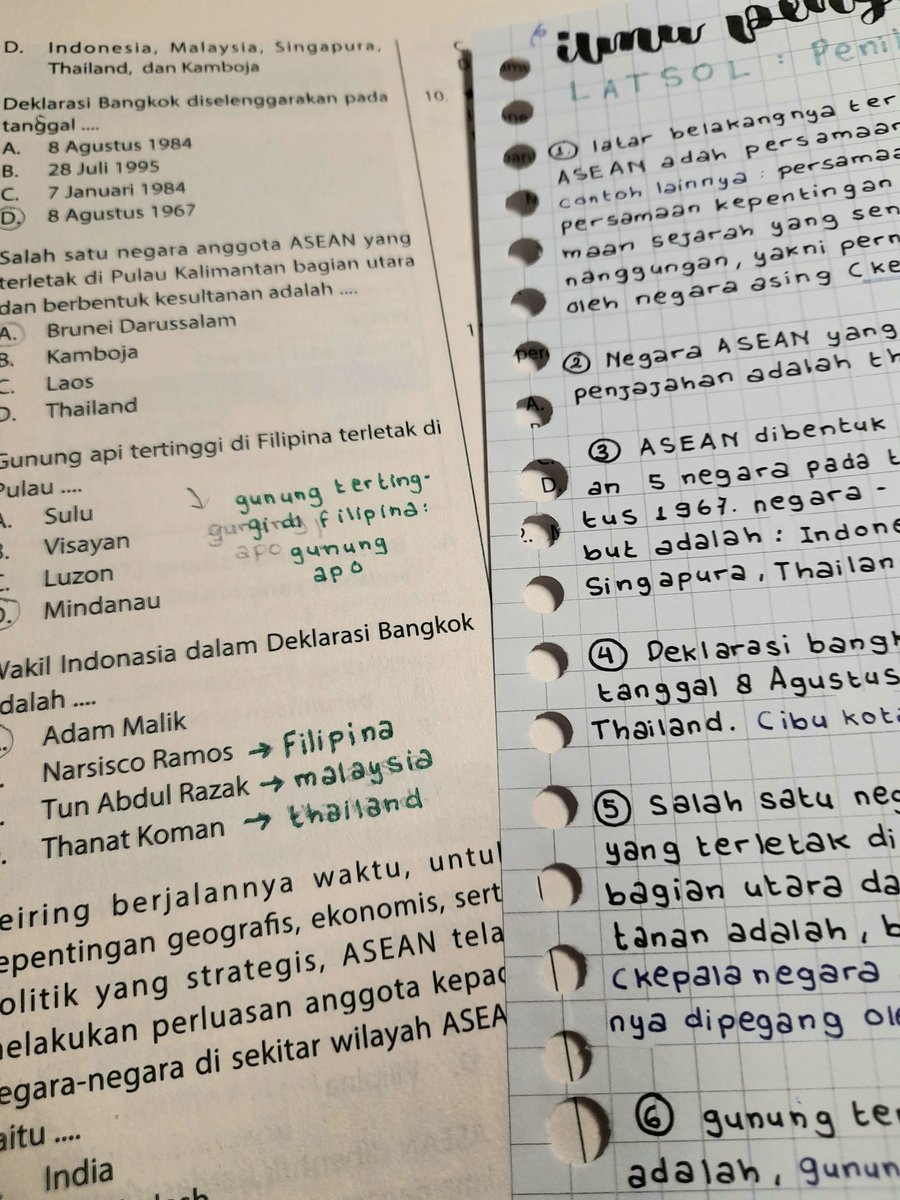 D. Indonesia, Malaysia, Singapura,
Thailand, dan Kamboja
Deklarasi Bangkok diselenggarakan pada
tanggal ....
A. 8 Agustus 1984
B. 28 Juli 1995
C. 7 Januari 1984
D. 8 Agustus 1967
Salah satu negara anggota ASEAN yang
terletak di Pulau Kalimantan bagian utara
dan berbentuk kesultanan adalah ....
A. Brunei Darussalam
B. Kamboja
C. Laos
D. Thailand
Gunung api tertinggi di Filipina terletak di
Pulau ....
A. Sulu
B. Visayan
C. Luzon
D. Mindanau
gunung terting-
gi di filipina:
gunung
apo
Wakil Indonasia dalam Deklarasi Bangkok
dalah ....
Adam Malik
Narsisco Ramos → Filipina
Tun Abdul Razak → malaysia
Thanat Koman → thailand
eiring berjalannya waktu, untu
epentingan geografis, ekonomis, sert
olitik yang strategis, ASEAN tela
melakukan perluasan anggota kepad
egara-negara di sekitar wilayah ASEA
aitu ....
India
10.
ilmu peng
LATSOL : Peni
① latar belakangnya ter
ASEAN adah persamaan
contoh lainnya : persamaa
persamaan kepentingan
maan sejarah yang sen
nanggungan, yakni pern
oleh negara asing (ke
② Negara ASEAN yang
penjajahan adalah th
③ ASEAN dibentuk
an 5 negara pada t
tus 1967. negara -
but adalah : Indone
Singapura, Thailan
④ Deklarasi bangk
tanggal 8 Agustus
Thailand. (ibu kota
⑤ salah satu neg
yang terletak di
bagian utara da
tanan adalah, b
(kepala negara
nya dipegang ole
⑥ gunung te
adalah, gunun